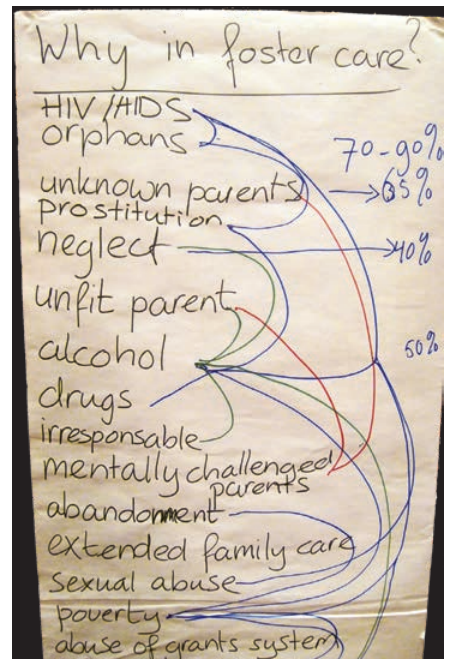 Why in foster care?
HIV/AIDS
orphans
70-90%
unknown parents
65%
prostitution
neglect
40%
unfit parent
alcohol
50%
drugs
irresponsable
mentally challenged
parents
abandonment
extended family care
sexual abuse
poverty
abuse of grants system